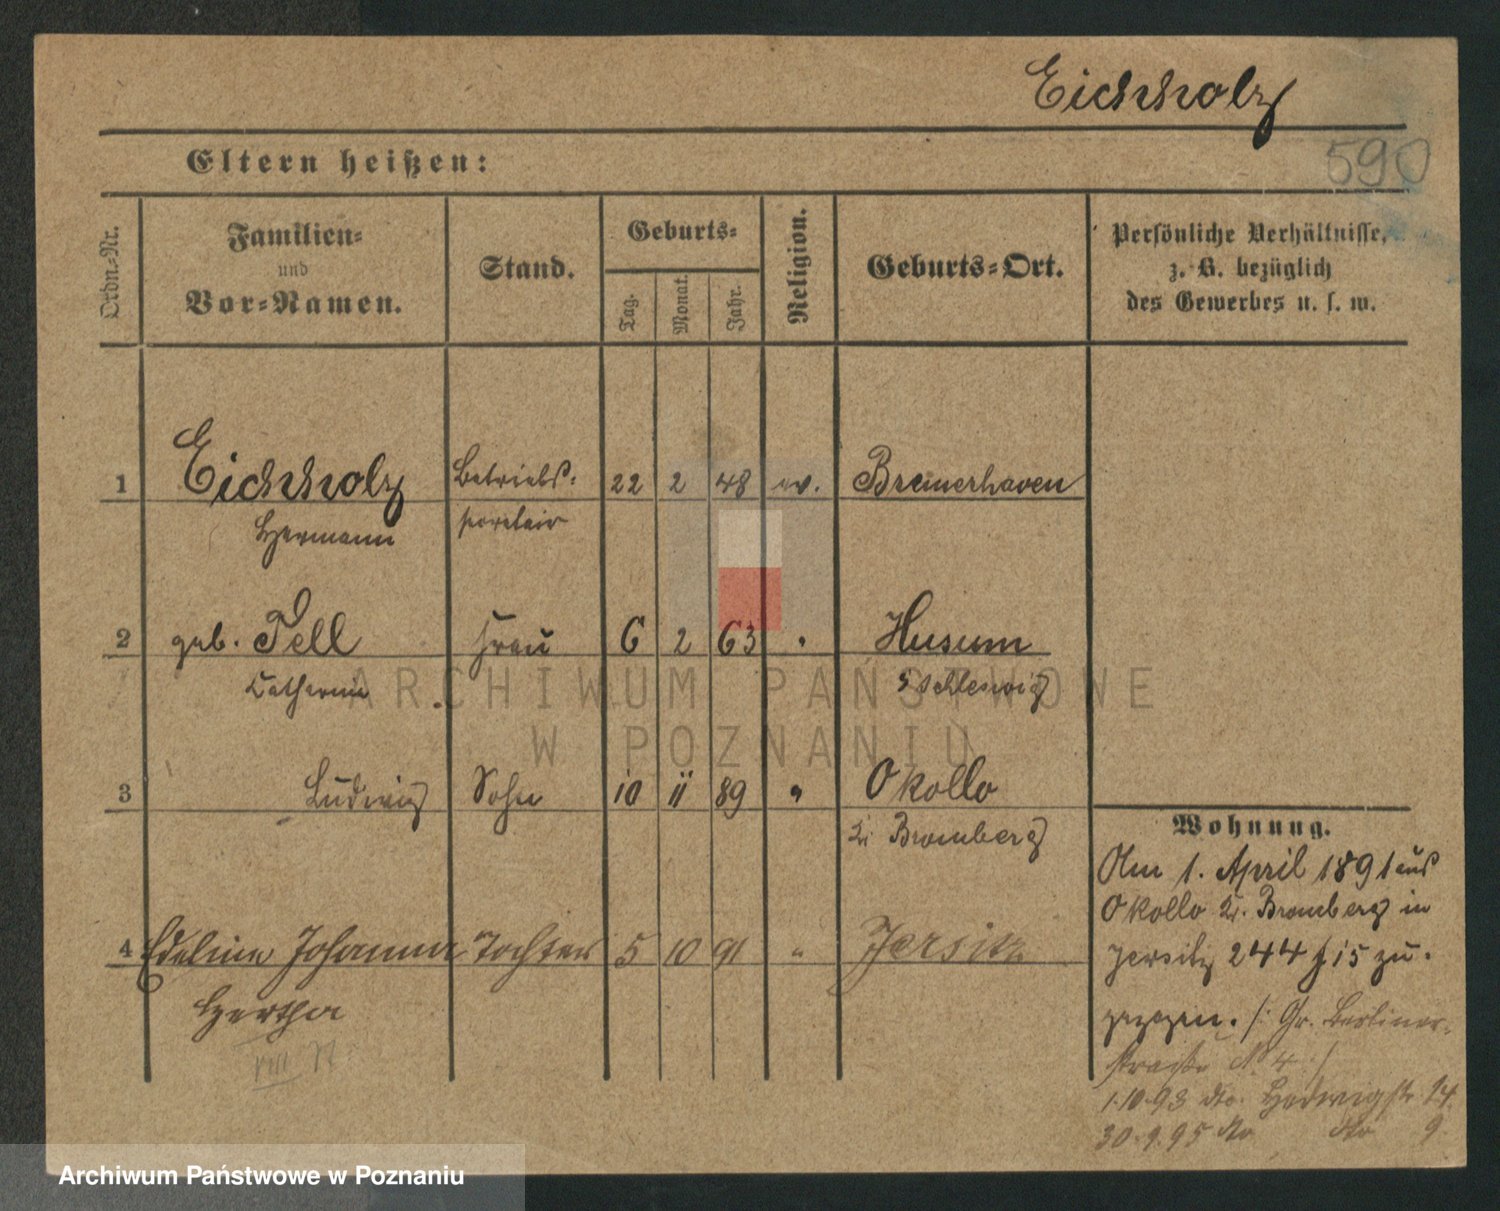 Eichholz
590
Eltern heißen:
Ordn.-Nr.
Familien-
und
Vor-Namen.
Stand.
Geburts-
Tag.
Monat.
Jahr.
Religion.
Geburts-Ort.
Persönliche Verhältnisse,
z. B. bezüglich
des Gewerbes u. s. w.
1 Eichholz Betriebs- 22 2 48 ev. Bremerhaven
Hermann
2 geb. Tell Frau 6 2 63 " Husum
Catharina Schleswig
3 Ludwig Sohn 10 11 89 " Okollo
Kr. Bromberg
4 Edeline Johanna Tochter 5 10 91 " Jersitz
Hertha
Wohnung.
Am 1. April 1891 aus
Okollo Kr. Bromberg in
Jersitz 244 f 15 zu-
gezogen. /: Gr. Berliner-
straße No 4 :/
1.10.93 dto. Hedwigstr 14.
30.9.95 dto dto 9
ARCHIWUM PAŃSTWOWE
W POZNANIU
Archiwum Państwowe w Poznaniu